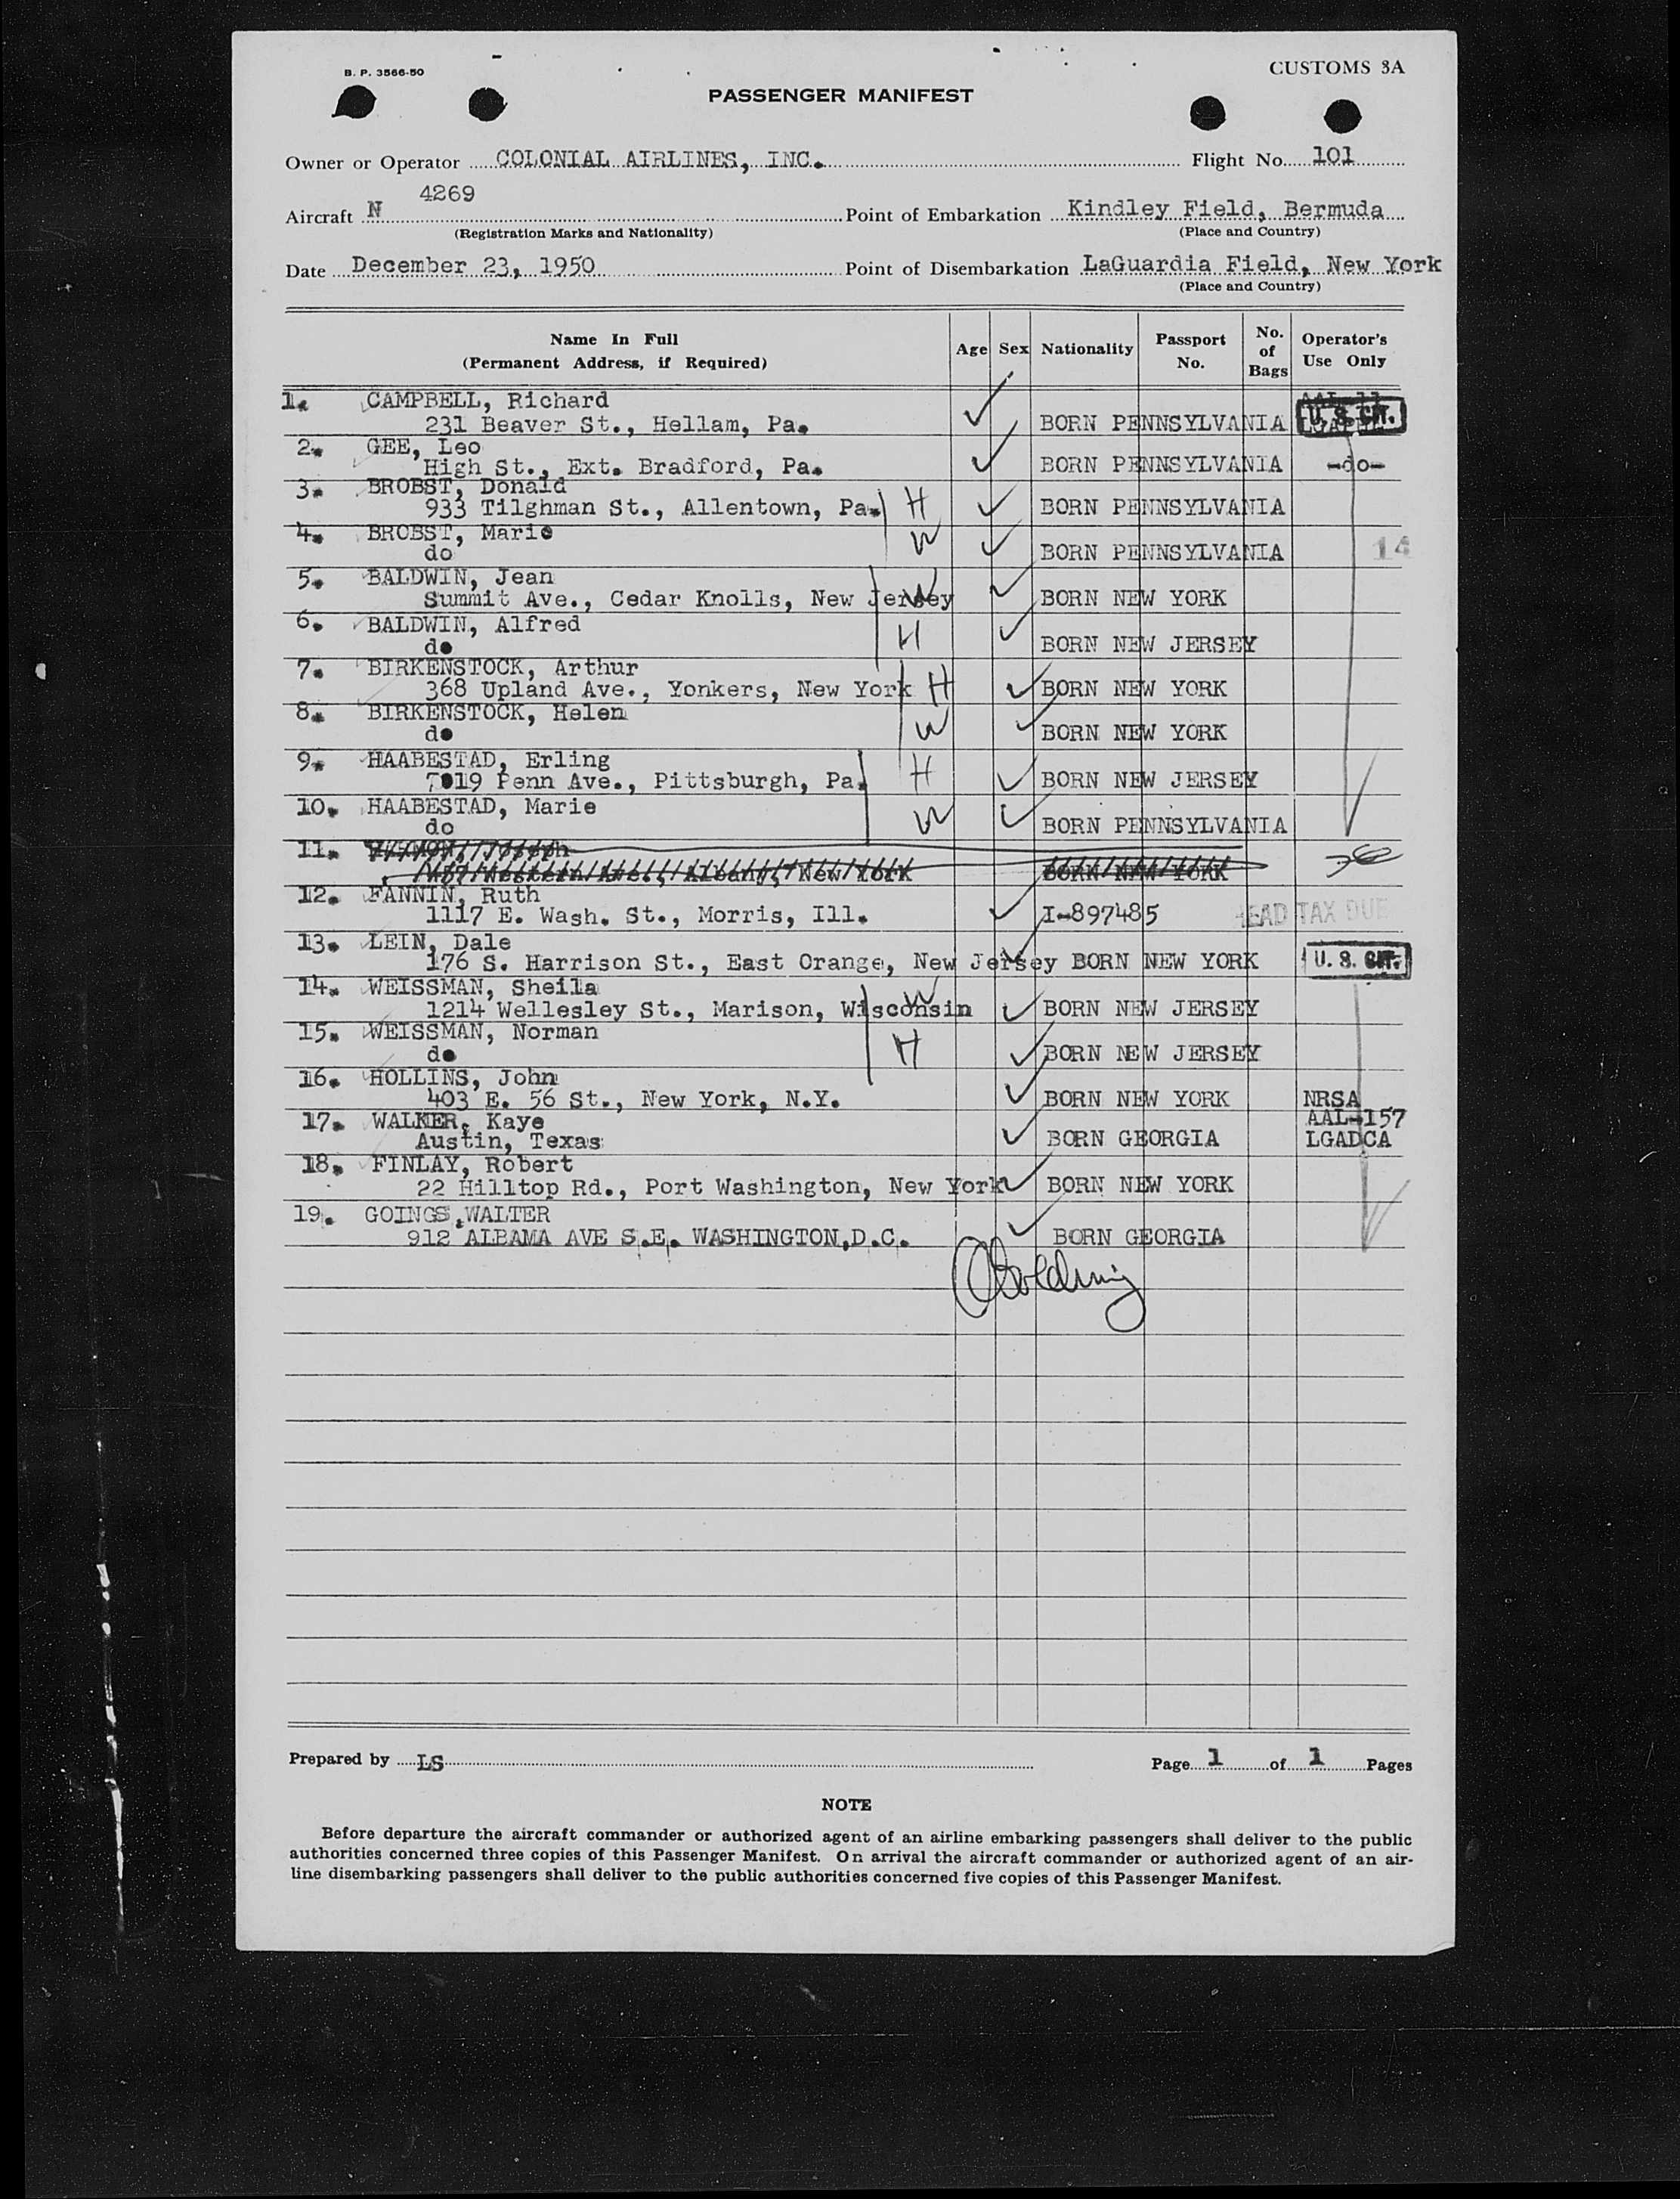 B. P. 3566-50
CUSTOMS 3A
PASSENGER MANIFEST
Owner or Operator COLONIAL AIRLINES, INC. Flight No. 101
4269
Aircraft N Point of Embarkation Kindley Field, Bermuda
(Registration Marks and Nationality) (Place and Country)
Date December 23, 1950 Point of Disembarkation LaGuardia Field, New York
(Place and Country)
Name In Full (Permanent Address, if Required) Age Sex Nationality Passport No. No. of Bags Operator's Use Only
1. CAMPBELL, Richard
231 Beaver St., Hellam, Pa. BORN PENNSYLVANIA U. S. CIT.
2. GEE, Leo
High St., Ext. Bradford, Pa. BORN PENNSYLVANIA -do-
3. BROBST, Donald
933 Tilghman St., Allentown, Pa. H BORN PENNSYLVANIA
4. BROBST, Marie
do W BORN PENNSYLVANIA 14
5. BALDWIN, Jean
Summit Ave., Cedar Knolls, New Jersey W BORN NEW YORK
6. BALDWIN, Alfred
do H BORN NEW JERSEY
7. BIRKENSTOCK, Arthur
368 Upland Ave., Yonkers, New York H BORN NEW YORK
8. BIRKENSTOCK, Helen
do W BORN NEW YORK
9. HAABESTAD, Erling
7019 Penn Ave., Pittsburgh, Pa. H BORN NEW JERSEY
10. HAABESTAD, Marie
do W BORN PENNSYLVANIA
11.
Western Ave., Albany, New York BORN NEW YORK
12. FANNIN, Ruth
1117 E. Wash. St., Morris, Ill. I-897485 HEAD TAX DUE
13. LEIN, Dale
176 S. Harrison St., East Orange, New Jersey BORN NEW YORK U. S. CIT.
14. WEISSMAN, Sheila
1214 Wellesley St., Marison, Wisconsin W BORN NEW JERSEY
15. WEISSMAN, Norman
do H BORN NEW JERSEY
16. HOLLINS, John
403 E. 56 St., New York, N.Y. BORN NEW YORK NRSA
17. WALKER, Kaye AAL-157
Austin, Texas BORN GEORGIA LGADCA
18. FINLAY, Robert
22 Hilltop Rd., Port Washington, New York BORN NEW YORK
19. GOINGS,WALTER
912 ALBAMA AVE S.E. WASHINGTON,D.C. BORN GEORGIA
Prepared by LS Page 1 of 1 Pages
NOTE
Before departure the aircraft commander or authorized agent of an airline embarking passengers shall deliver to the public
authorities concerned three copies of this Passenger Manifest. On arrival the aircraft commander or authorized agent of an air-
line disembarking passengers shall deliver to the public authorities concerned five copies of this Passenger Manifest.